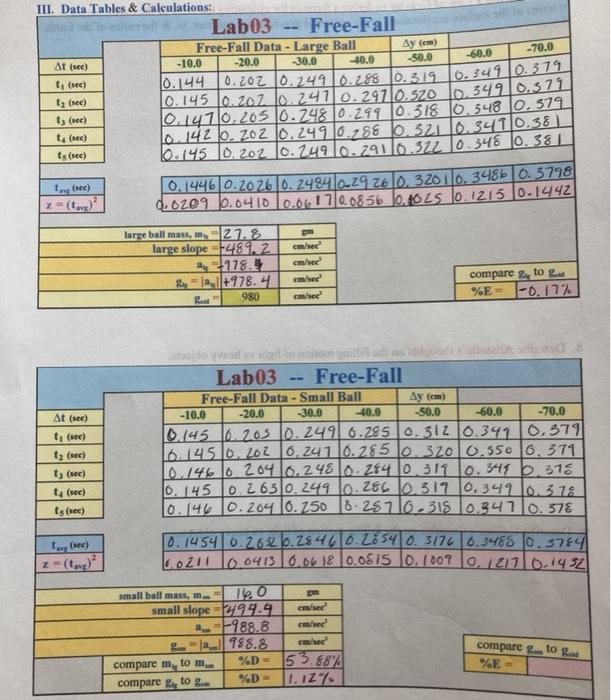 III. Data Tables & Calculations:
Lab03 -- Free-Fall
Free-Fall Data - Large Ball Δy (cm)
Δt (sec) -10.0 -20.0 -30.0 -40.0 -50.0 -60.0 -70.0
t₁ (sec) 0.144 0.202 0.249 0.288 0.319 0.349 0.379
t₂ (sec) 0.145 0.202 0.247 0.297 0.320 0.349 0.379
t₃ (sec) 0.147 0.205 0.248 0.299 0.318 0.348 0.379
t₄ (sec) 0.142 0.202 0.249 0.288 0.321 0.349 0.381
t₅ (sec) 0.145 0.202 0.249 0.291 0.322 0.348 0.381
tavg (sec) 0.1446 0.2026 0.2484 0.2926 0.3201 0.3486 0.3798
z = (tavg)² 0.0209 0.0410 0.0617 0.0856 0.1025 0.1215 0.1442
large ball mass, mlg = 27.8 gm
large slope = -489.2 cm/sec²
alg = -978.4 cm/sec²
glg = |alg| +978.4 cm/sec²
gstd = 980 cm/sec²
compare glg to gstd
%E = -0.17%
Lab03 -- Free-Fall
Free-Fall Data - Small Ball Δy (cm)
Δt (sec) -10.0 -20.0 -30.0 -40.0 -50.0 -60.0 -70.0
t₁ (sec) 0.145 0.203 0.249 0.285 0.312 0.349 0.379
t₂ (sec) 0.145 0.202 0.247 0.285 0.320 0.350 0.379
t₃ (sec) 0.146 0.204 0.248 0.284 0.319 0.349 0.378
t₄ (sec) 0.145 0.203 0.249 0.286 0.319 0.349 0.378
t₅ (sec) 0.146 0.204 0.250 0.287 0.318 0.347 0.378
tavg (sec) 0.1454 0.2032 0.2846 0.2854 0.3176 0.3488 0.3784
z = (tavg)² 0.0211 0.0413 0.0618 0.0815 0.1009 0.1217 0.1432
small ball mass, msm = 16.0 gm
small slope = -499.4 cm/sec²
asm = -988.8 cm/sec²
gsm = |asm| 988.8 cm/sec²
compare mlg to msm %D = 53.88%
compare glg to gsm %D = 1.12%
compare gsm to gstd
%E =